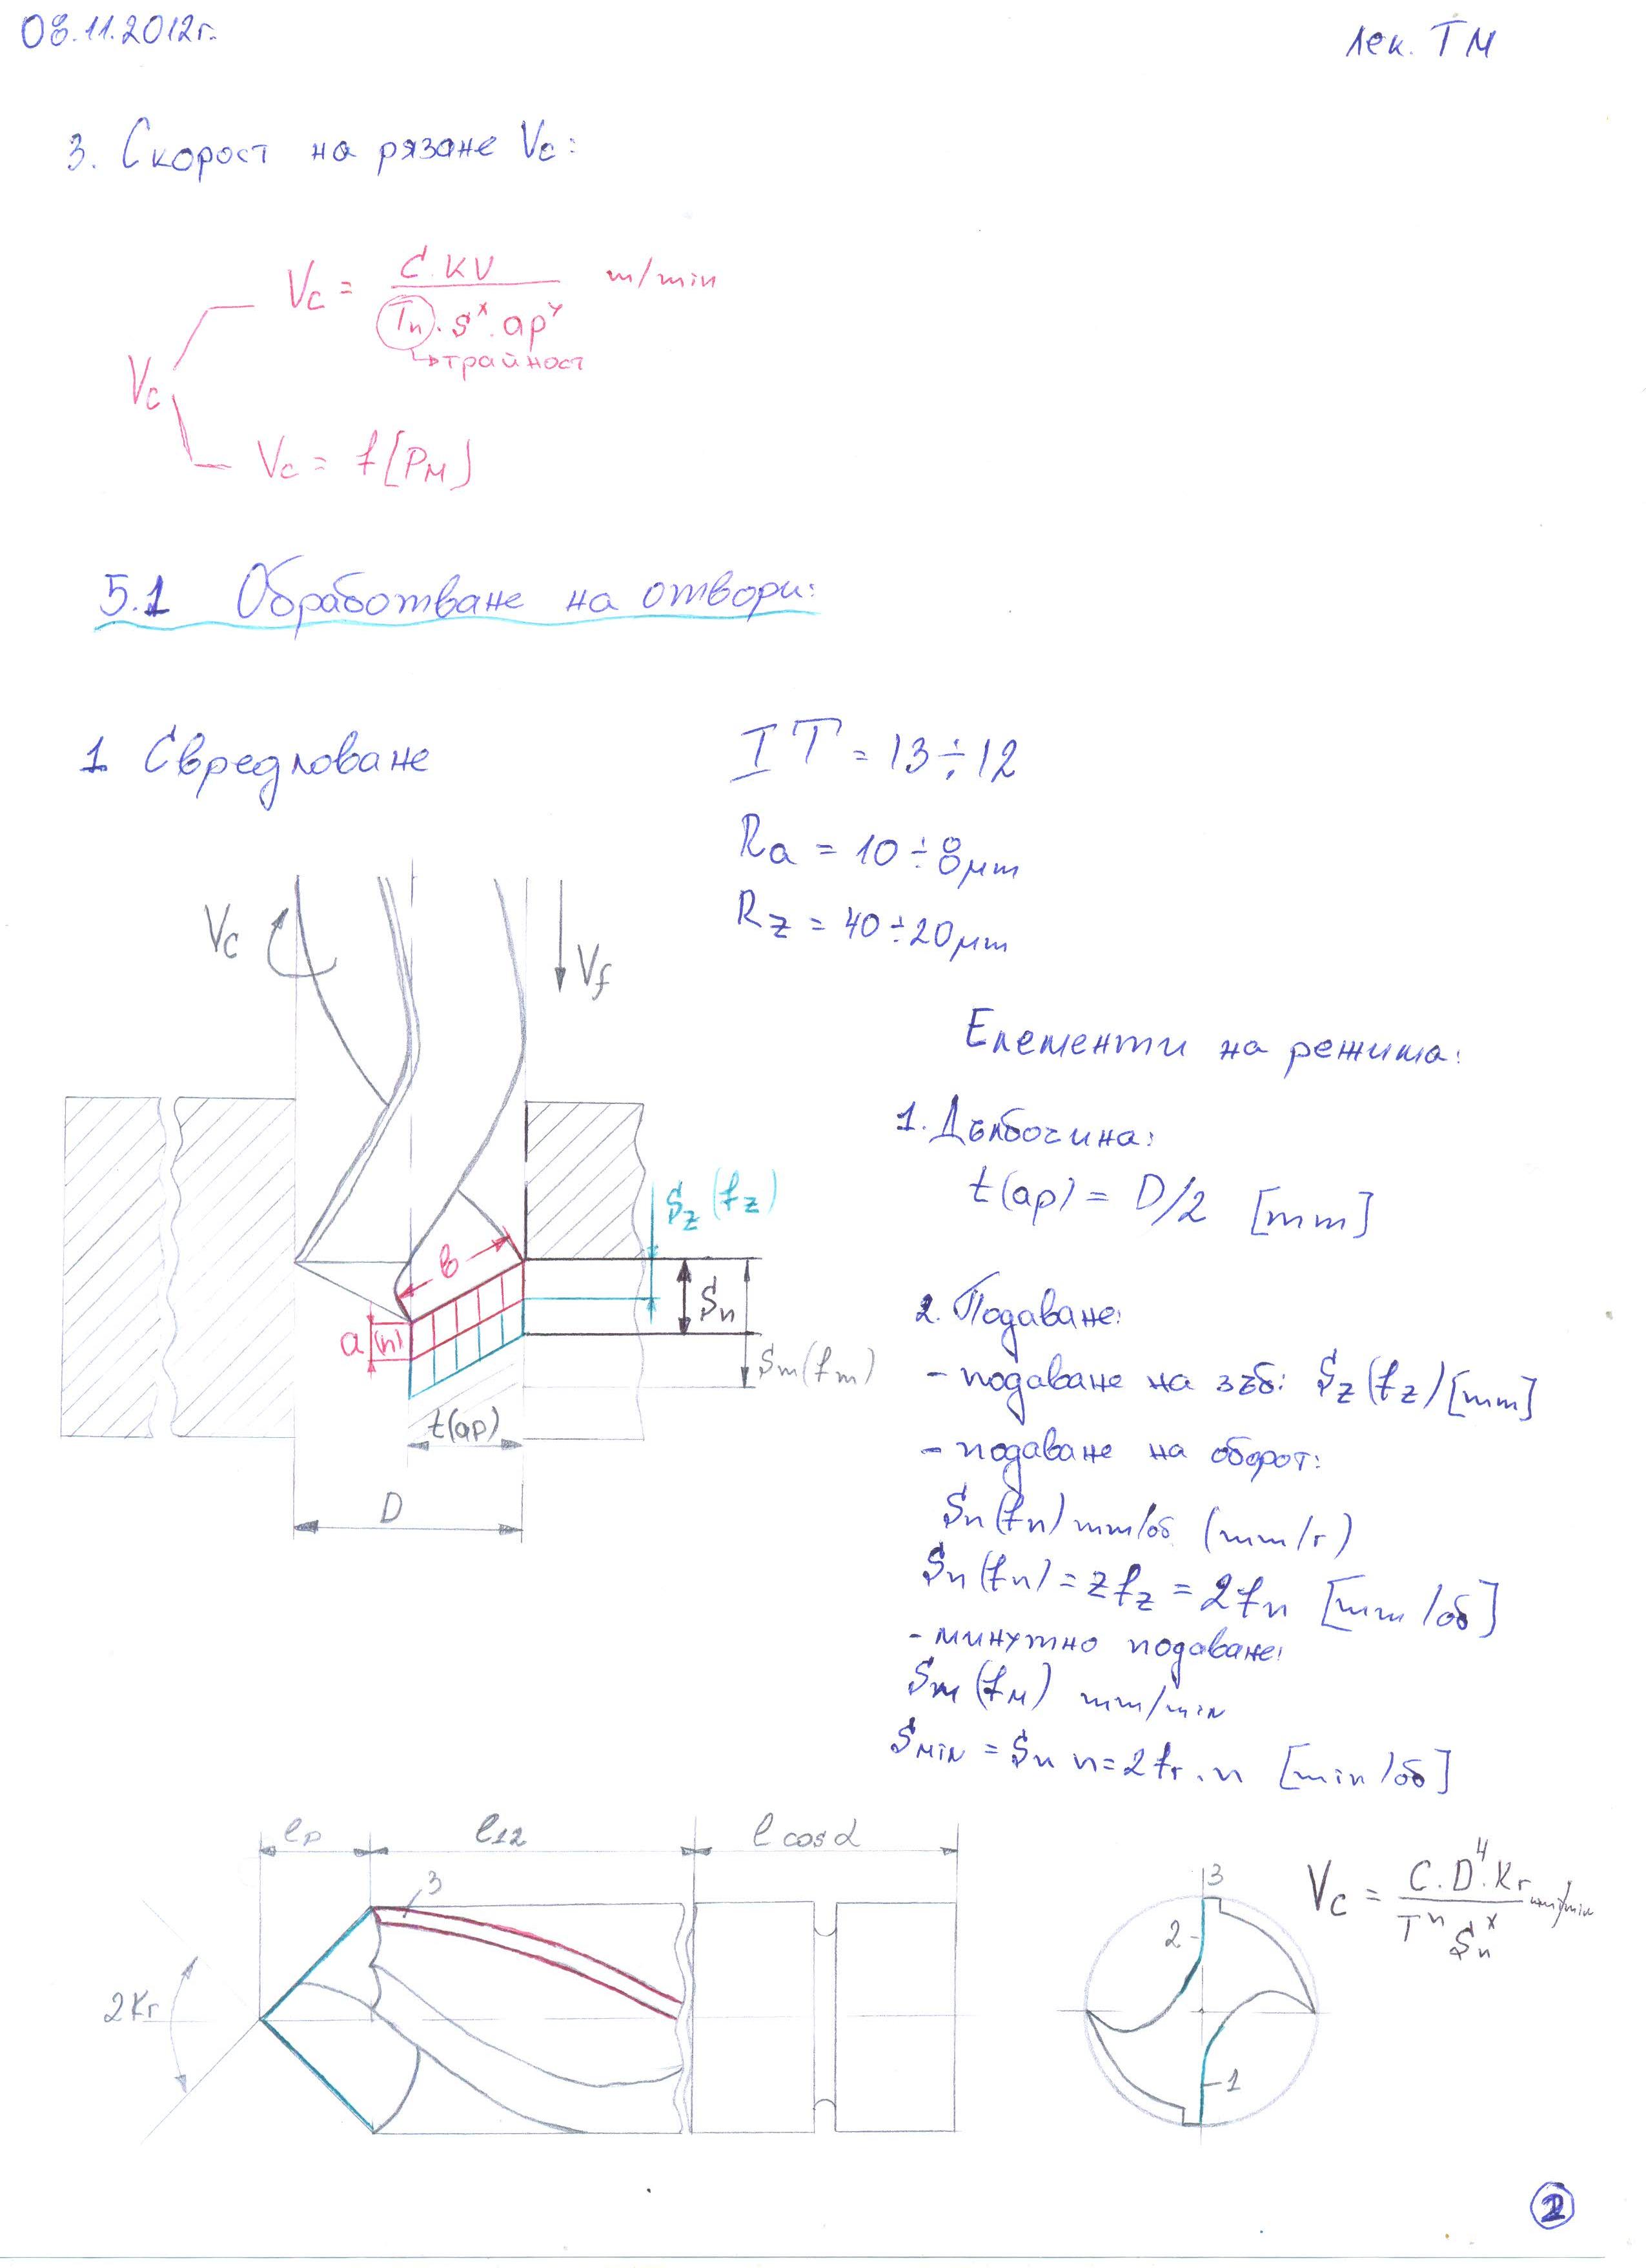 08.11.2012г.
лек. ТМ
3. Скорост на рязане Vc:
Vc
Vc = C.KV / Tn . S^x . ap^y m/min
↳ трайност
Vc = f[PM]
5.1 Обработване на отвори:
1. Свредловане
IT = 13÷12
Ra = 10÷8μm
Rz = 40÷20μm
Vc
Vf
Sz (fz)
в
Sn
a (h)
Sm (fm)
t(ap)
D
Елементи на режима:
1. Дълбочина:
t(ap) = D/2 [mm]
2. Подаване:
- подаване на зъб: Sz (fz) [mm]
- подаване на оборот:
Sn (fn) mm/об (mm/r)
Sn (fn) = z fz = 2fn [mm/об]
- минутно подаване:
Sm (fм) mm/min
Smin = Sn n = 2fr.n [min/об]
lp
l12
l cosα
3
2Kr
3
2
1
Vc = C.D^4.Kr / T^n Sn^x
2